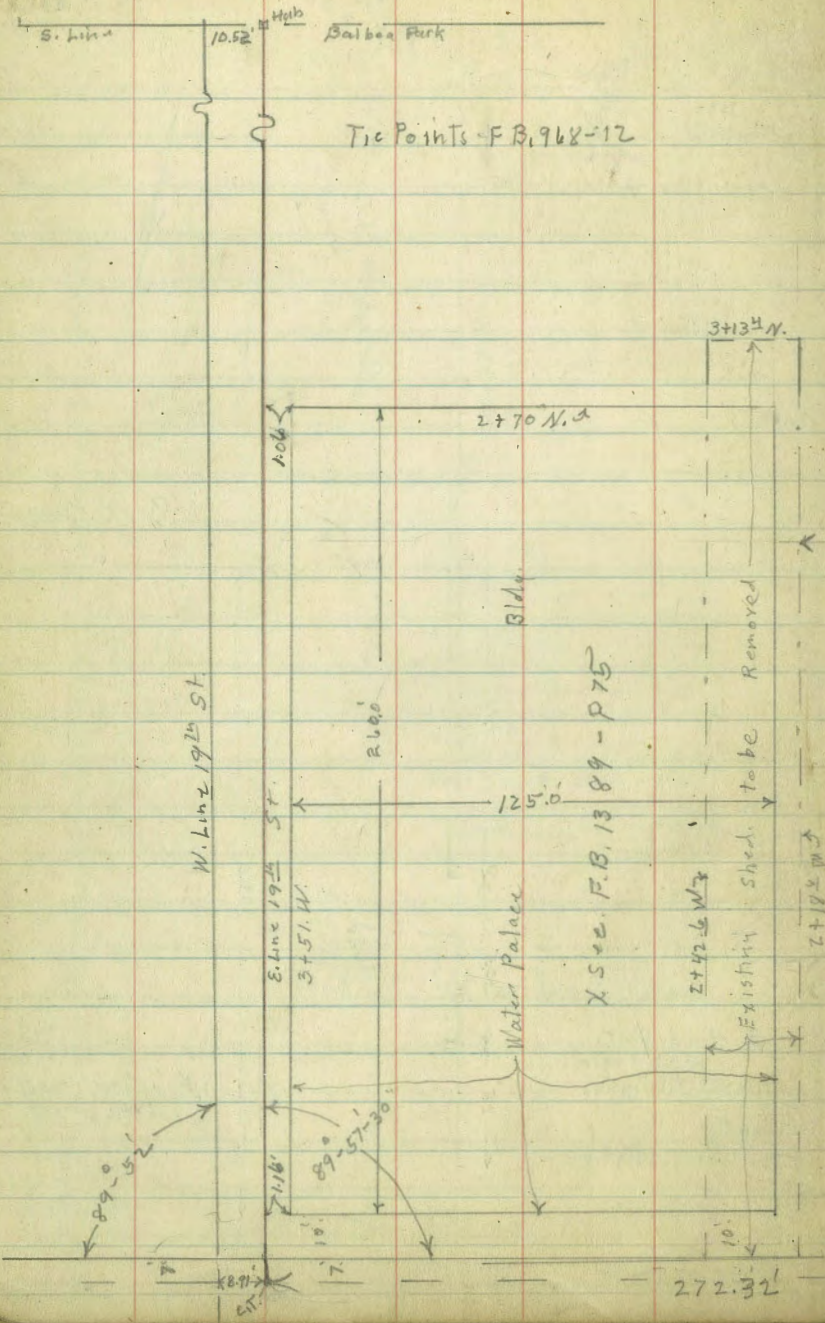 S. Line
10.52'
Hub
Balboa Park
Tie Points F B. 968-12
3+13⁴ N.
2+70 N.
1.06
Bldg.
260.0'
W. Line 19th St.
E. Line 19th St.
3+51. W.
125.0'
Water Palace
X Sec. F.B. 1389 - P75
2+42.6 W
Existing Shed to be Removed
89-° 52'
89-° 57'-30
1.16'
10'
7'
7'
8.91
10'
272.32'